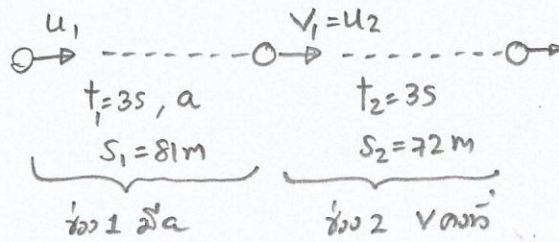 u₁ v₁=u₂
t₁=3s , a t₂=3s
s₁=81m s₂=72m
ช่วง 1 มี a ช่วง 2 v คงที่